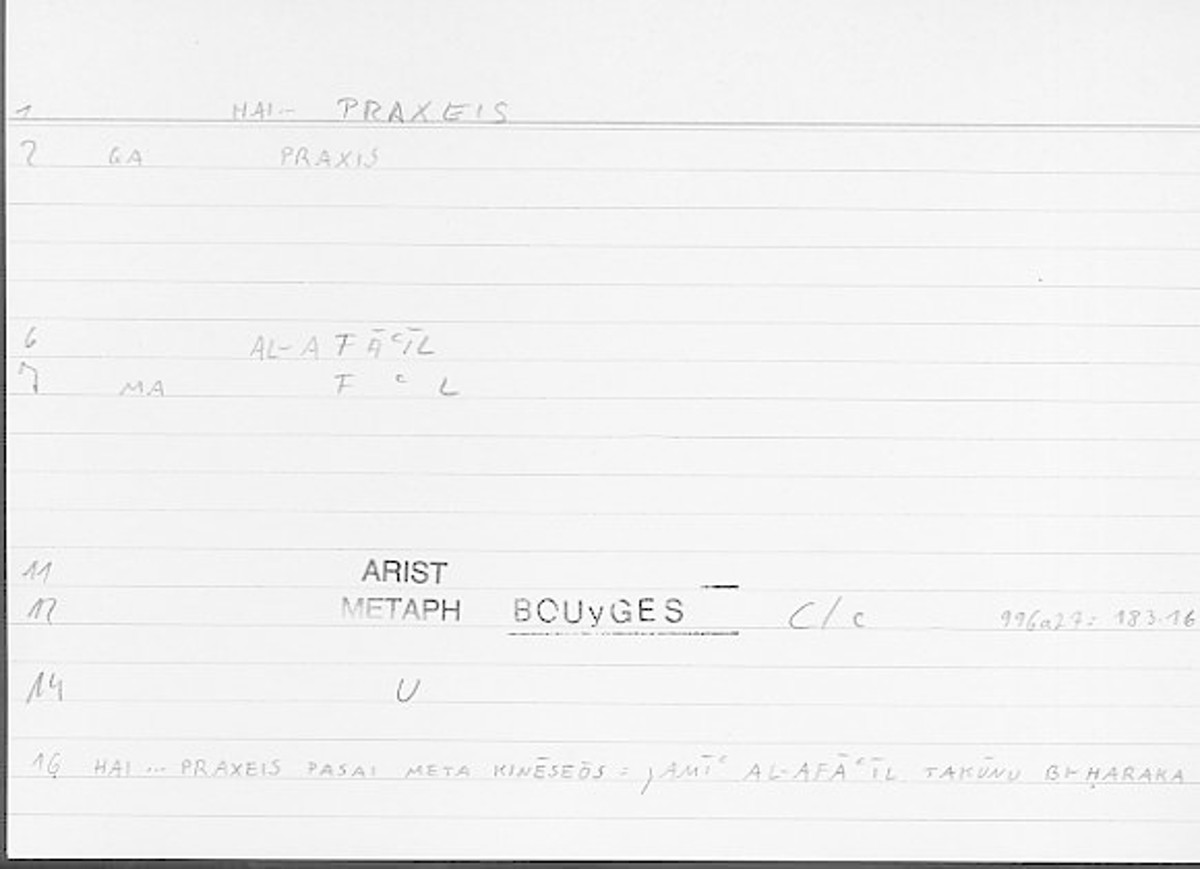 1 HAI- PRAXEIS
2 GA PRAXIS
6 AL-AFĀʿĪL
7 MA F ʿ L
11 ARIST
12 METAPH BOUyGES C/c 996a27: 183.16
14 U
16 HAI ... PRAXEIS PASAI META KINĒSEŌS = ǧAMĪʿ AL-AFĀʿĪL TAKŪNU BI-ḤARAKA